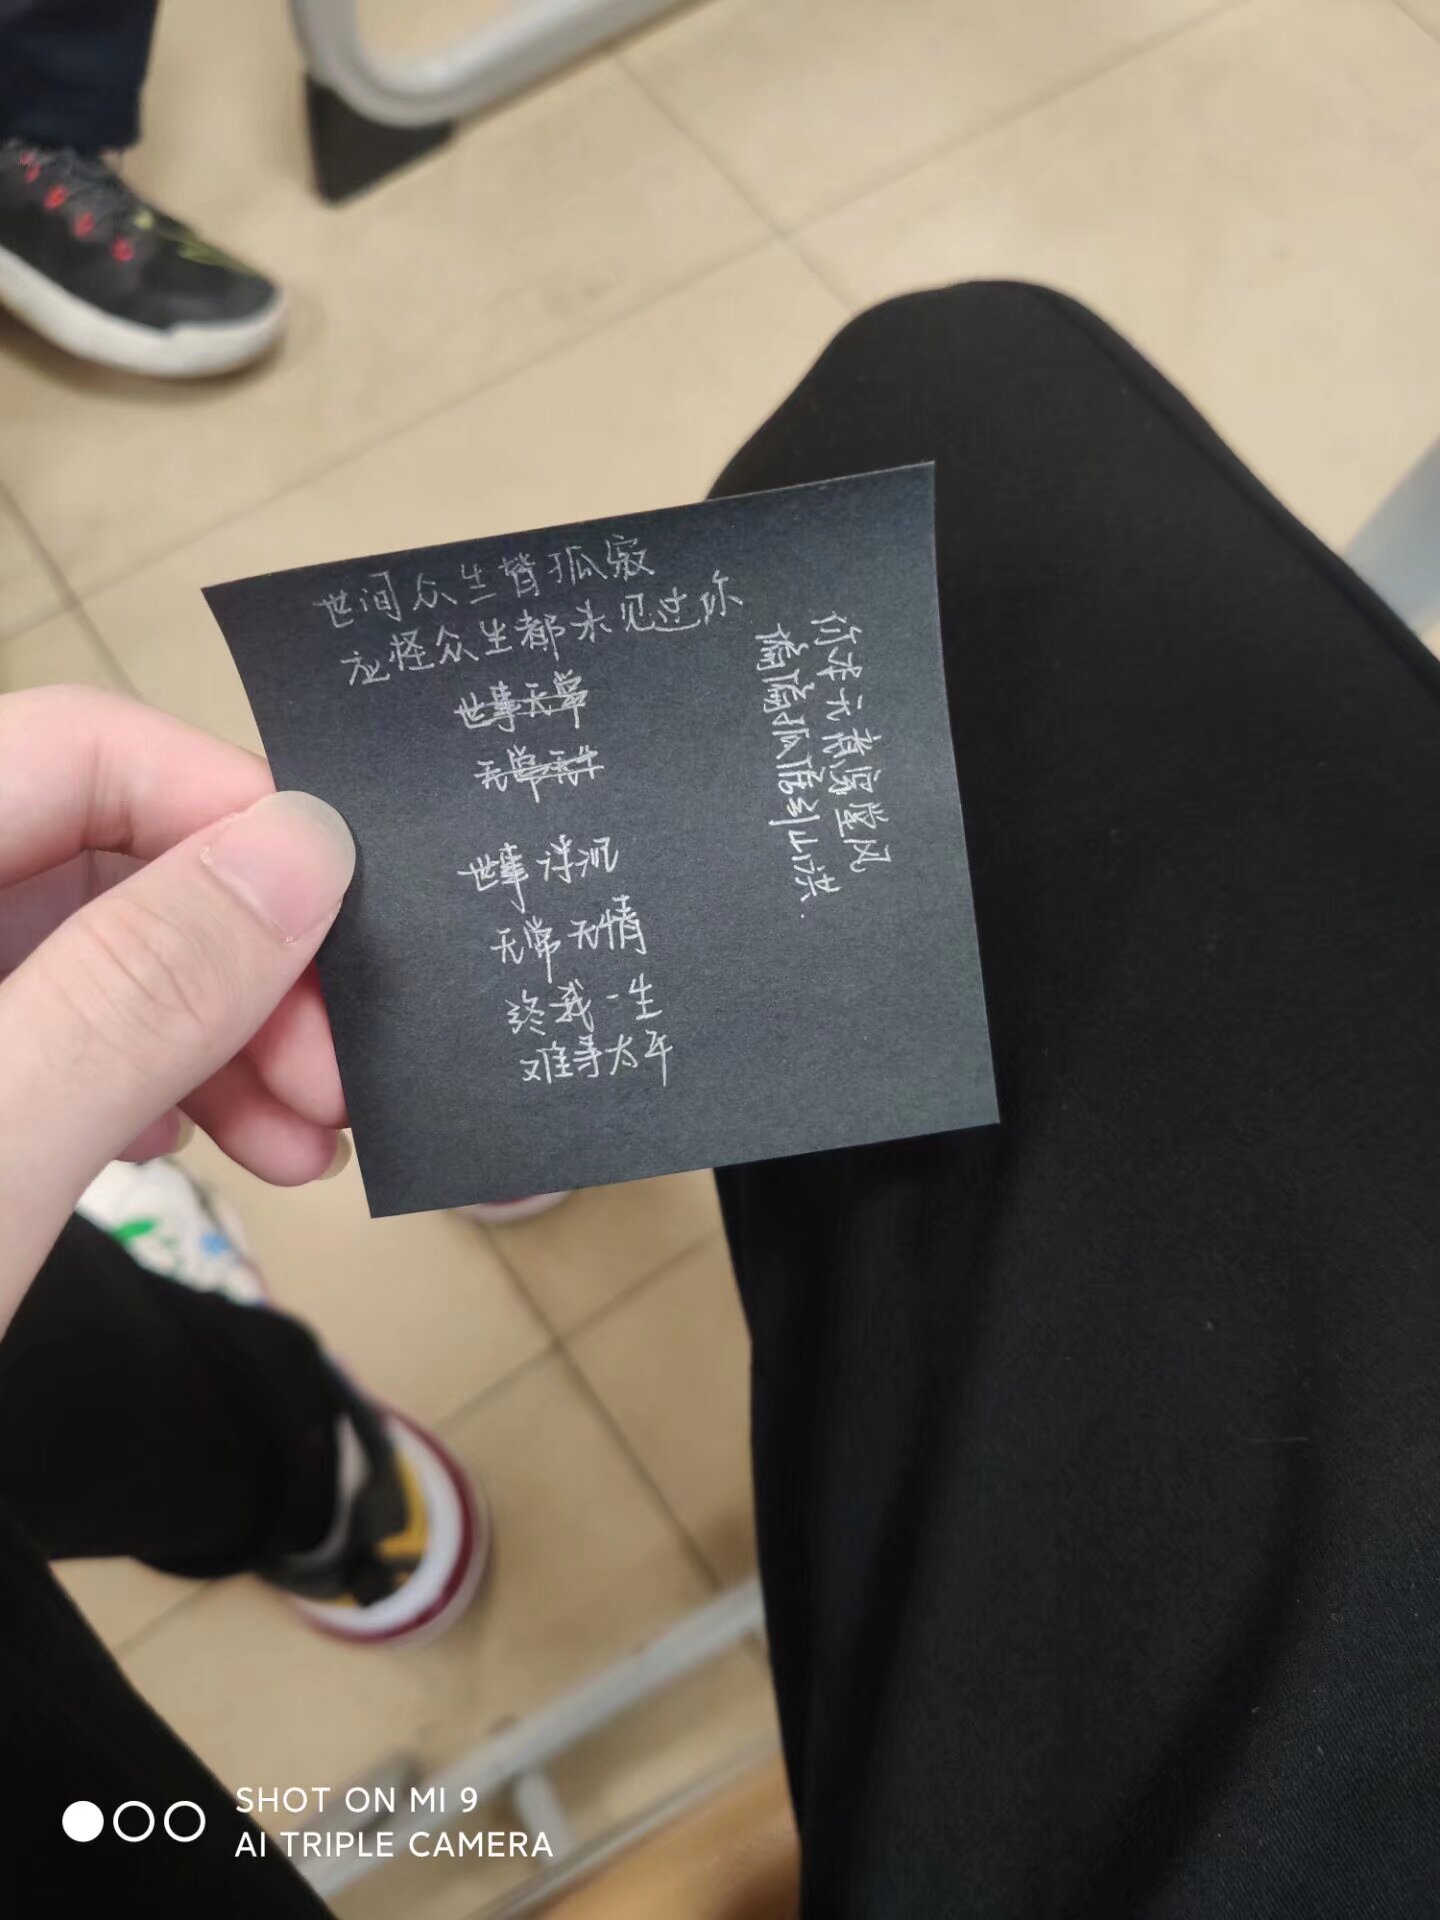 世间众生皆孤寂
应怪众生都未见过你
世事无常
无常无生
世事浮沉
无常无情
终我一生
难寻太平
你本无意穿堂风
偏偏孤倨引山洪.
SHOT ON MI 9
AI TRIPLE CAMERA